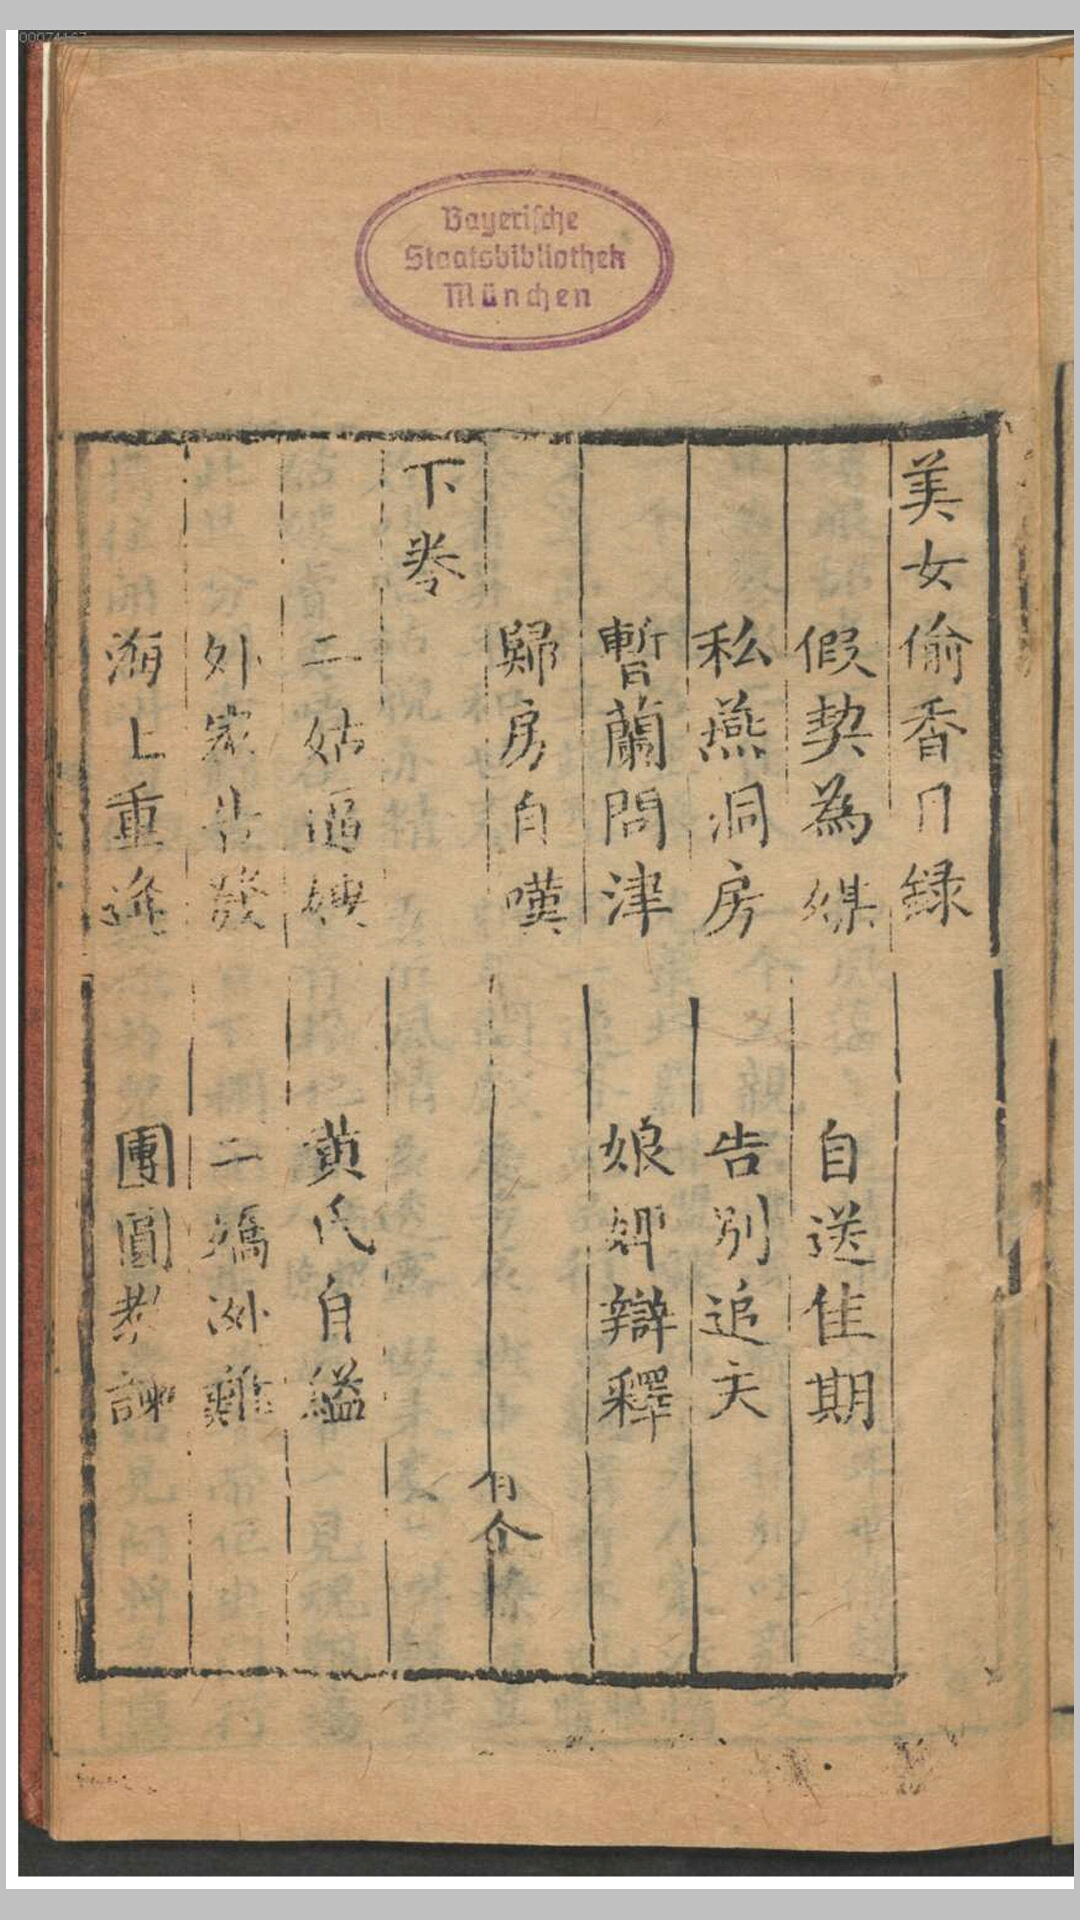 00074167
Bayerische
Staatsbibliothek
München
美女偷香目録
假契為媒　自送佳期
私燕洞房　告别追夫
暫蘭問津　娘婢辯釋
歸房自嘆
有介
下卷
二姑逼嫂　黄氏自縊
外家告發　二嬌
海上重逢　團圓